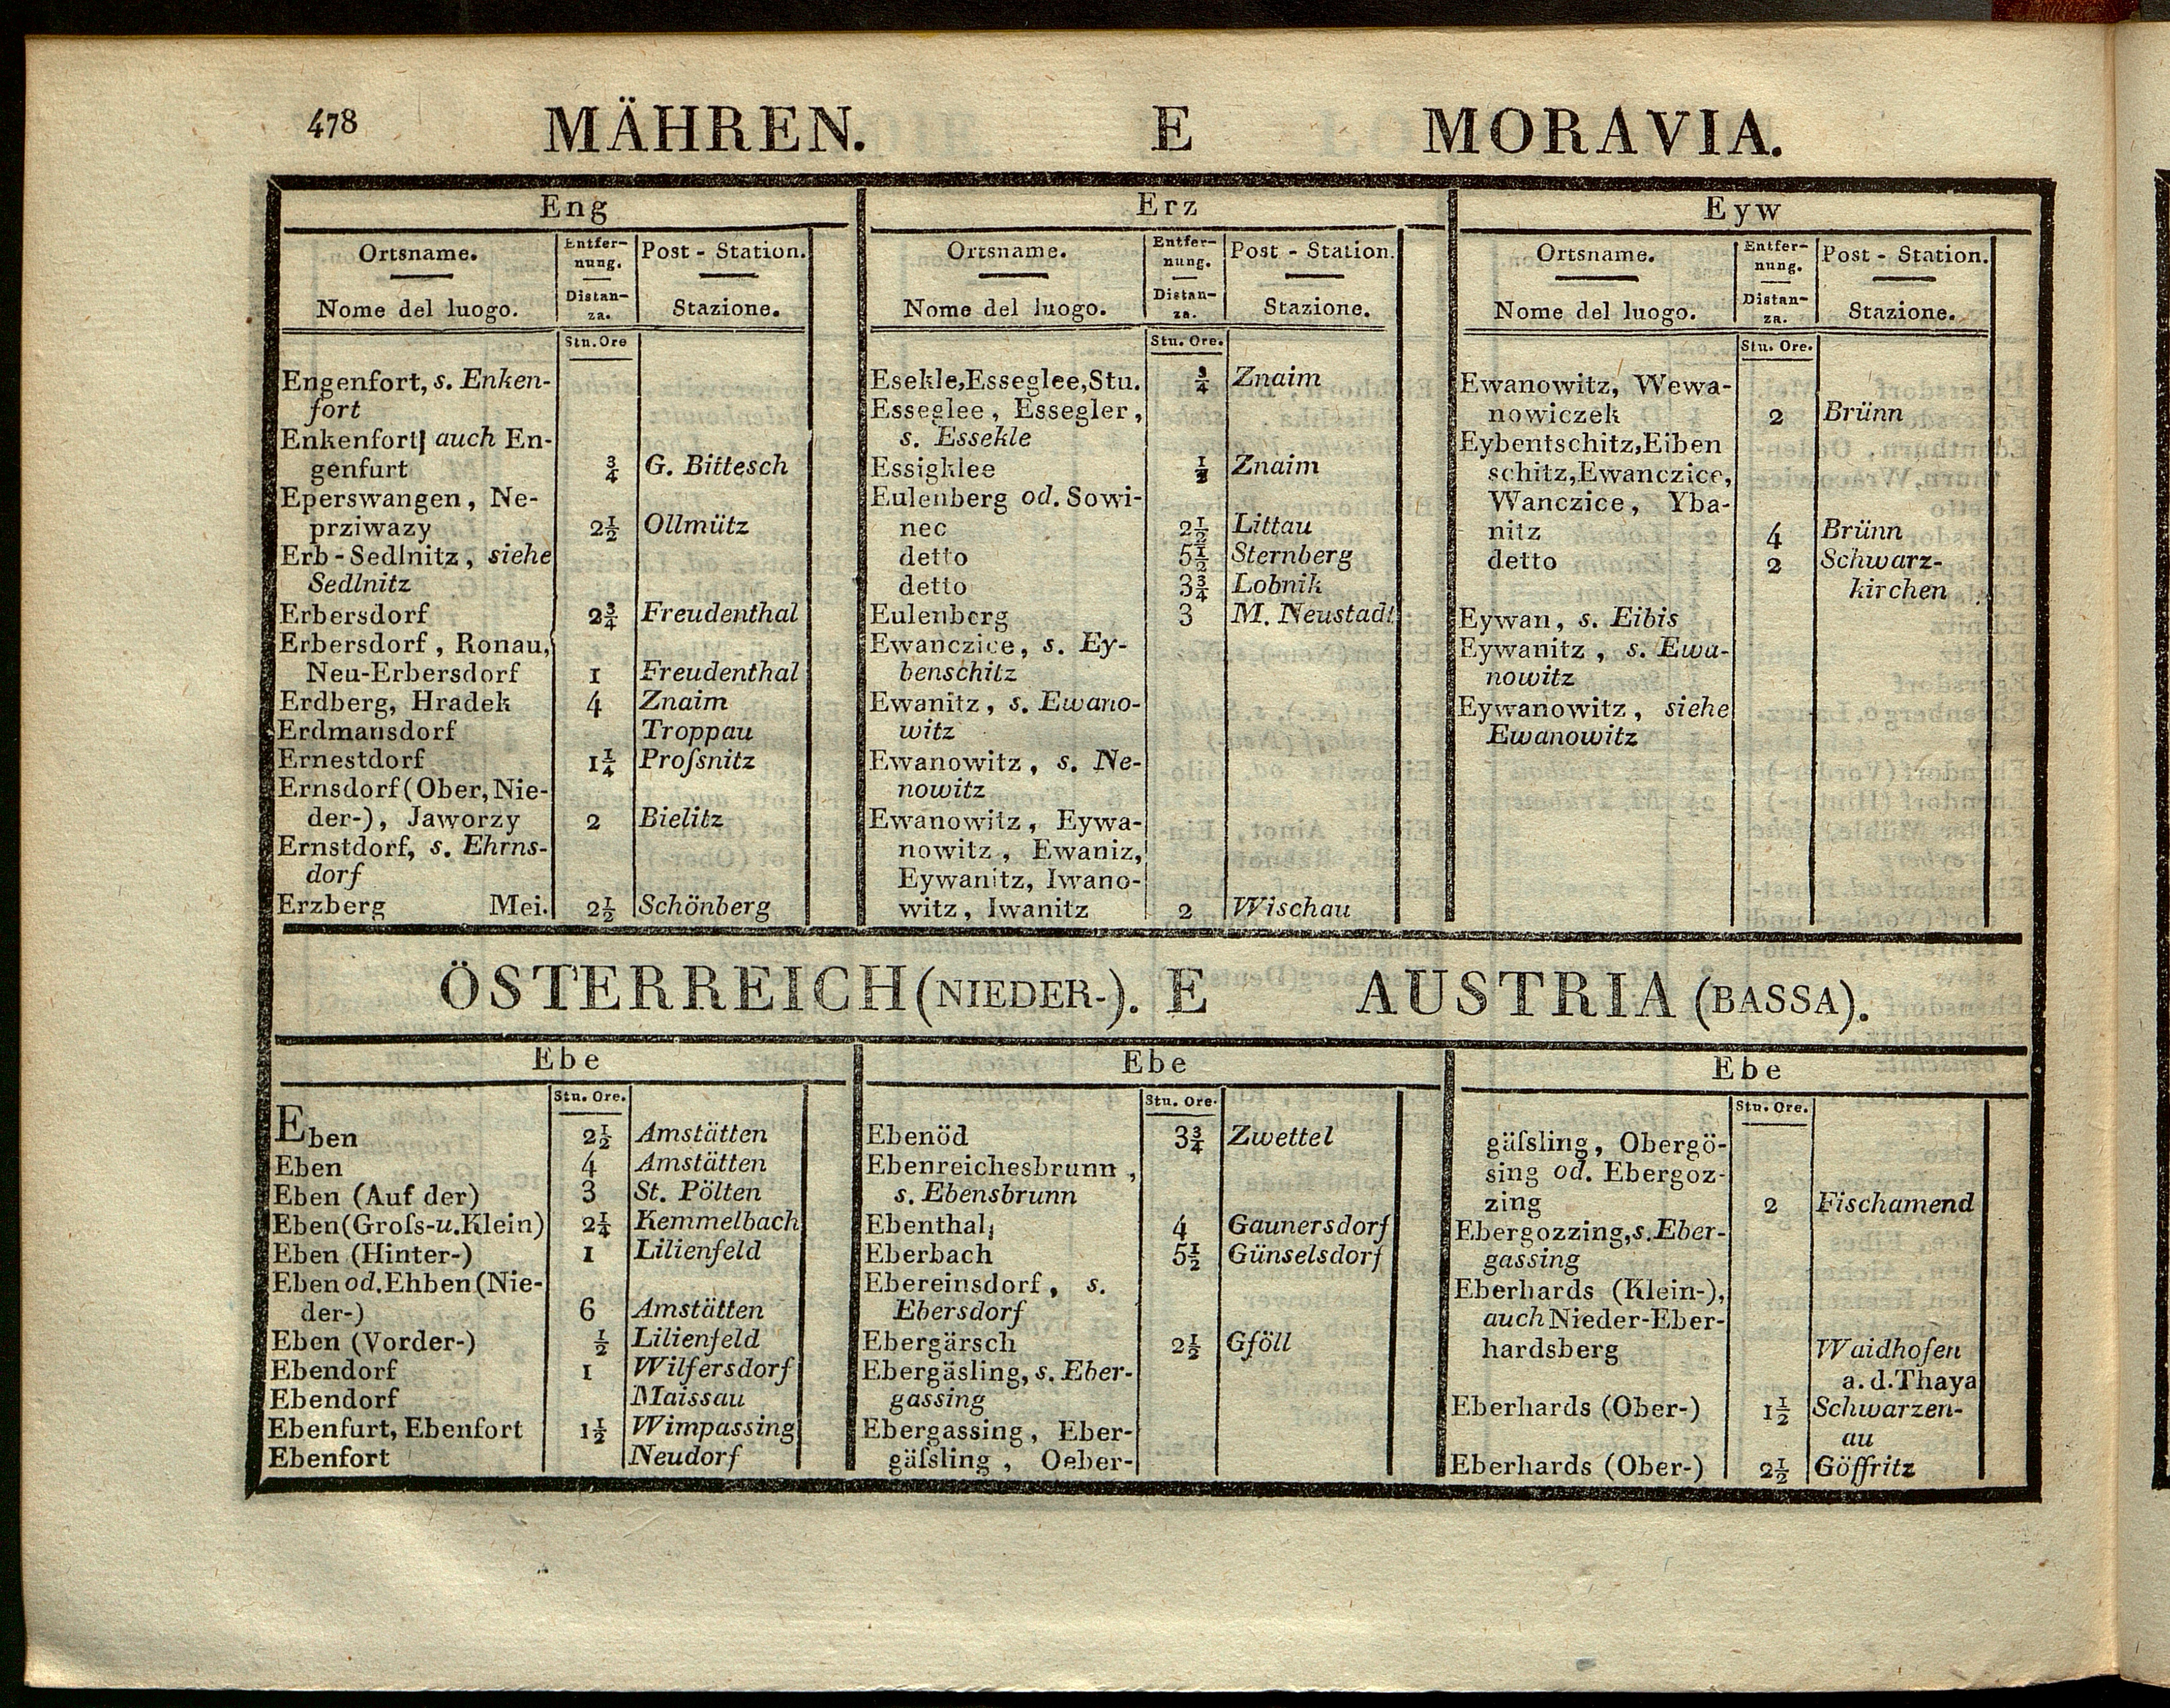 478 MÄHREN. E MORAVIA.
Eng
Ortsname. Entfer- Post - Station.
nung.
Nome del luogo. Distan- Stazione.
za.
Stn. Ore
Engenfort, s. Enken-
fort
Enkenfort, auch En-
genfurt ¾ G. Bittesch
Eperswangen, Ne-
prziwazy 2½ Ollmütz
Erb-Sedlnitz, siehe
Sedlnitz
Erbersdorf 2¾ Freudenthal
Erbersdorf, Ronau,
Neu-Erbersdorf 1 Freudenthal
Erdberg, Hradek 4 Znaim
Erdmansdorf Troppau
Ernestdorf 1¼ Proſsnitz
Ernsdorf (Ober, Nie-
der-), Jaworzy 2 Bielitz
Ernstdorf, s. Ehrns-
dorf
Erzberg Mei. 2½ Schönberg
Erz
Ortsname. Entfer- Post - Station.
nung.
Nome del luogo. Distan- Stazione.
za.
Stn. Ore.
Esekle, Esseglee, Stu. ¾ Znaim
Esseglee, Essegler,
s. Essekle
Essigklee ½ Znaim
Eulenberg od. Sowi-
nec 2½ Littau
detto 5½ Sternberg
detto 3¾ Lobnik
Eulenberg 3 M. Neustadt
Ewanczice, s. Ey-
benschitz
Ewanitz, s. Ewano-
witz
Ewanowitz, s. Ne-
nowitz
Ewanowitz, Eywa-
nowitz, Ewaniz,
Eywanitz, Iwano-
witz, Iwanitz 2 Wischau
Eyw
Ortsname. Entfer- Post - Station.
nung.
Nome del luogo. Distan- Stazione.
za.
Stn. Ore.
Ewanowitz, Wewa-
nowiczek 2 Brünn
Eybentschitz, Eiben
schitz, Ewanczice,
Wanczice, Yba-
nitz 4 Brünn
detto 2 Schwarz-
kirchen
Eywan, s. Eibis
Eywanitz, s. Ewa-
nowitz
Eywanowitz, siehe
Ewanowitz
ÖSTERREICH (NIEDER-). E AUSTRIA (BASSA).
Ebe
Stn. Ore.
Eben 2½ Amstätten
Eben 4 Amstätten
Eben (Auf der) 3 St. Pölten
Eben (Groſs- u. Klein) 2¼ Kemmelbach
Eben (Hinter-) 1 Lilienfeld
Eben od. Ehben (Nie-
der-) 6 Amstätten
Eben (Vorder-) ½ Lilienfeld
Ebendorf 1 Wilfersdorf
Ebendorf Maissau
Ebenfurt, Ebenfort 1½ Wimpassing
Ebenfort Neudorf
Ebe
Stn. Ore.
Ebenöd 3¾ Zwettel
Ebenreichesbrunn,
s. Ebensbrunn
Ebenthal, 4 Gaunersdorf
Eberbach 5½ Günselsdorf
Ebereinsdorf, s.
Ebersdorf
Ebergärsch 2½ Gföll
Ebergäsling, s. Eber-
gassing
Ebergassing, Eber-
gäſsling, Oeber-
Ebe
Stn. Ore.
gäſsling, Obergö-
sing od. Ebergoz-
zing 2 Fischamend
Ebergozzing, s. Eber-
gassing
Eberhards (Klein-),
auch Nieder-Eber-
hardsberg Waidhofen
a. d. Thaya
Eberhards (Ober-) 1½ Schwarzen-
au
Eberhards (Ober-) 2½ Göffritz